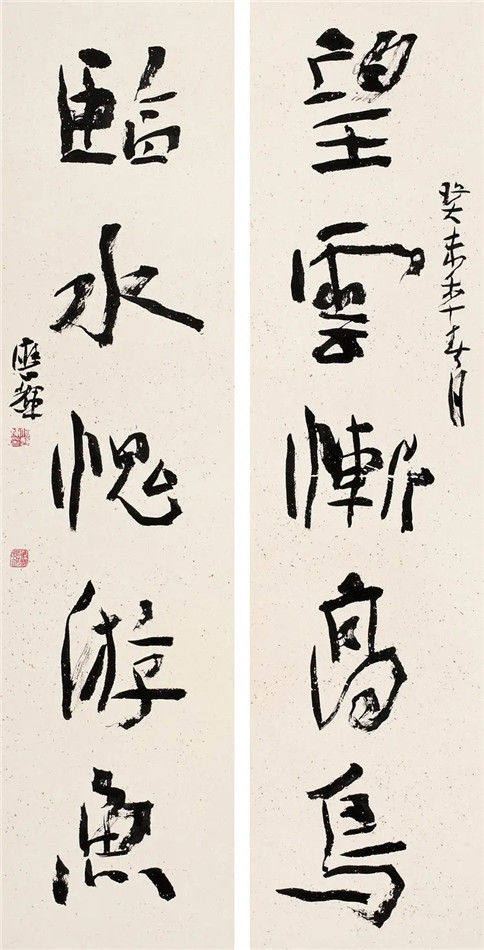 望雲慚高鳥
癸未年十月
臨水愧游魚
應輝